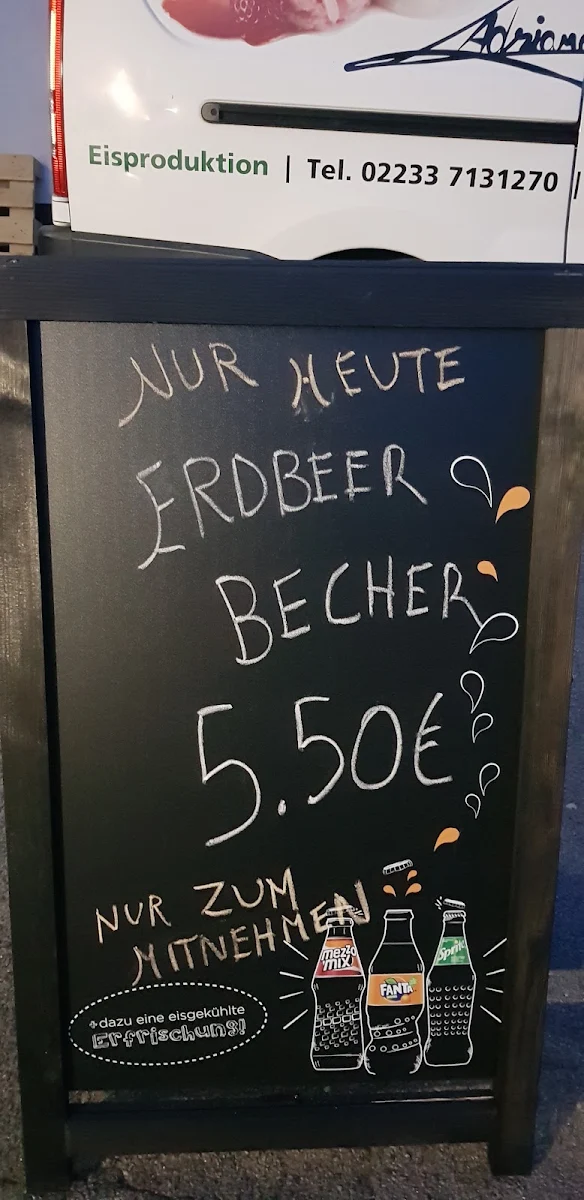 Adriano
Eisproduktion | Tel. 02233 7131270 |
NUR HEUTE
ERDBEER
BECHER
5.50€
NUR ZUM
MITNEHMEN
mezzo mix
FANTA
Sprite
+dazu eine eisgekühlte
Erfrischung!